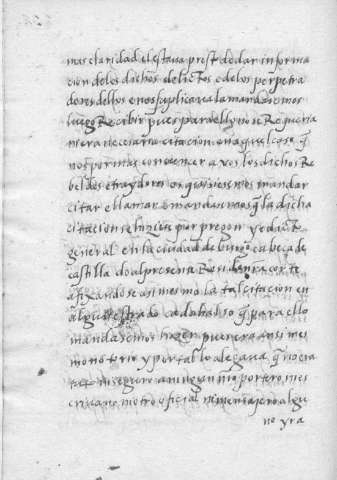 mas claridad el estava prest de dar informa
cion de los dichos delictos e de los perpetra
dores dellos e nos suplicava la mandasemos
luego Recibir pues para ello no se Requeria
ni era necesario citacion en aquel caso q̃
nos por mas convencer a vos los dichos Re
beldes e traydores os quisiesemos mandar
citar e llamar e mandasemos q̃ la dicha
citacion se hiziese por pregon y edicto
general en la ciudad de burgos cabeca de
castilla do al presente Reside nra corte
afixandose ansimesmo la tal citacion en
algun estrado cadahalso q̃ para ello
mandasemos hazer pues era ansimes
mo notorio y por tal lo alegava q̃ no era
tuto ni seguro a ningun nro portero ni es
crivano ni otro oficial ni mensajero algu
no yr a